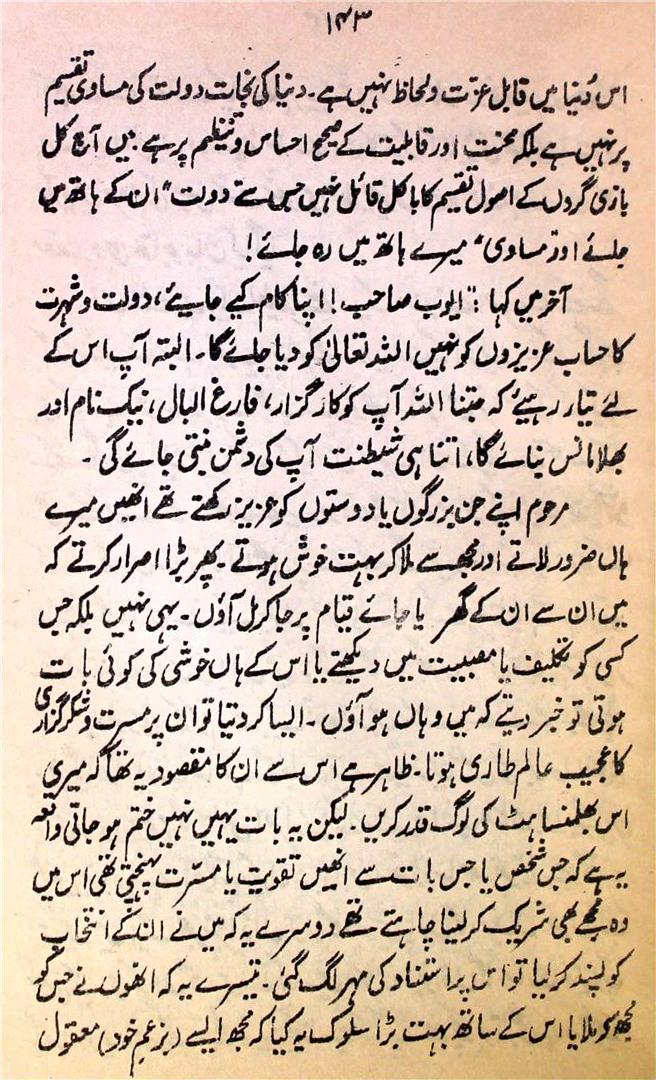 ۱۴۳
اس دُنیا میں قابل عزّت و لحاظ نہیں ہے۔ دنیا کی نجات دولت کی مساوی تقسیم
پر نہیں ہے بلکہ محنت اور قابلیت کے صحیح احساس و تنظیم پر ہے میں آج کل
بازی گروں کے اصول تقسیم کا بالکل قائل نہیں جس سے دولت "ان کے ہاتھ میں
جلئے اور مساوی" میرے ہاتھ میں رہ جائے!
آخر میں کہا: "ایوب صاحب! اپنا کام کیے جایئے، دولت و شہرت
کا حساب عزیزوں کو نہیں اللہ تعالیٰ کو دیا جائے گا۔ البتہ آپ اس کے
لئے تیار رہیئے کہ جتنا اللہ آپ کو کارگزار، فارغ البال، نیک نام اور
بھلا مانس بنائے گا، اتنا ہی شیطنت آپ کی دشمن بنتی جائے گی۔
مرحوم اپنے جن بزرگوں یا دوستوں کو عزیز رکھتے تھے انھیں میرے
ہاں ضرور لاتے اور مجھ سے ملا کر بہت خوش ہوتے۔ پھر بڑا اصرار کرتے کہ
میں ان سے ان کے گھر یا جائے قیام پر جا کر مل آؤں۔ یہی نہیں بلکہ جس
کسی کو تکلیف یا مصیبت میں دیکھتے یا اس کے ہاں خوشی کی کوئی بات
ہوتی تو خبر دیتے کہ میں وہاں ہو آؤں۔ ایسا کر دیتا تو ان پر مسرت و شکر گزاری
کا عجیب عالم طاری ہوتا۔ ظاہر ہے اس سے ان کا مقصود یہ تھا کہ میری
اس بھلمنساہٹ کی لوگ قدر کریں۔ لیکن یہ بات یہیں نہیں ختم ہو جاتی واقعہ
یہ ہے کہ جس شخص یا جس بات سے انھیں تقویت یا مسرّت پہنچتی تھی اس میں
وہ مجھے بھی شریک کر لینا چاہتے تھے دوسرے یہ کہ میں نے ان کے انتخاب
کو پسند کر لیا تو اس پر استناد کی مہر لگ گئی۔ تیسرے یہ کہ انھوں نے جس کو
مجھ کو ملایا اس کے ساتھ بہت بڑا سلوک یہ کیا کہ مجھ ایسے (بزعم خود) معقول